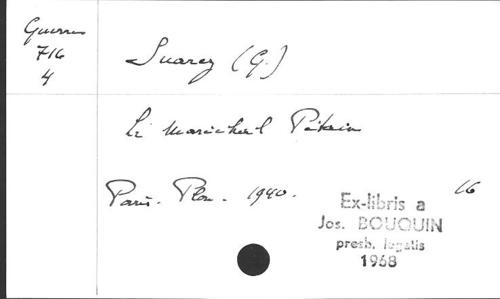 Guerres
716
4
Suarez (G.)
Le Maréchal Pétain
Paris. Plon. 1940. 16
Ex-libris a
Jos. BOUQUIN
presb. legatis
1968